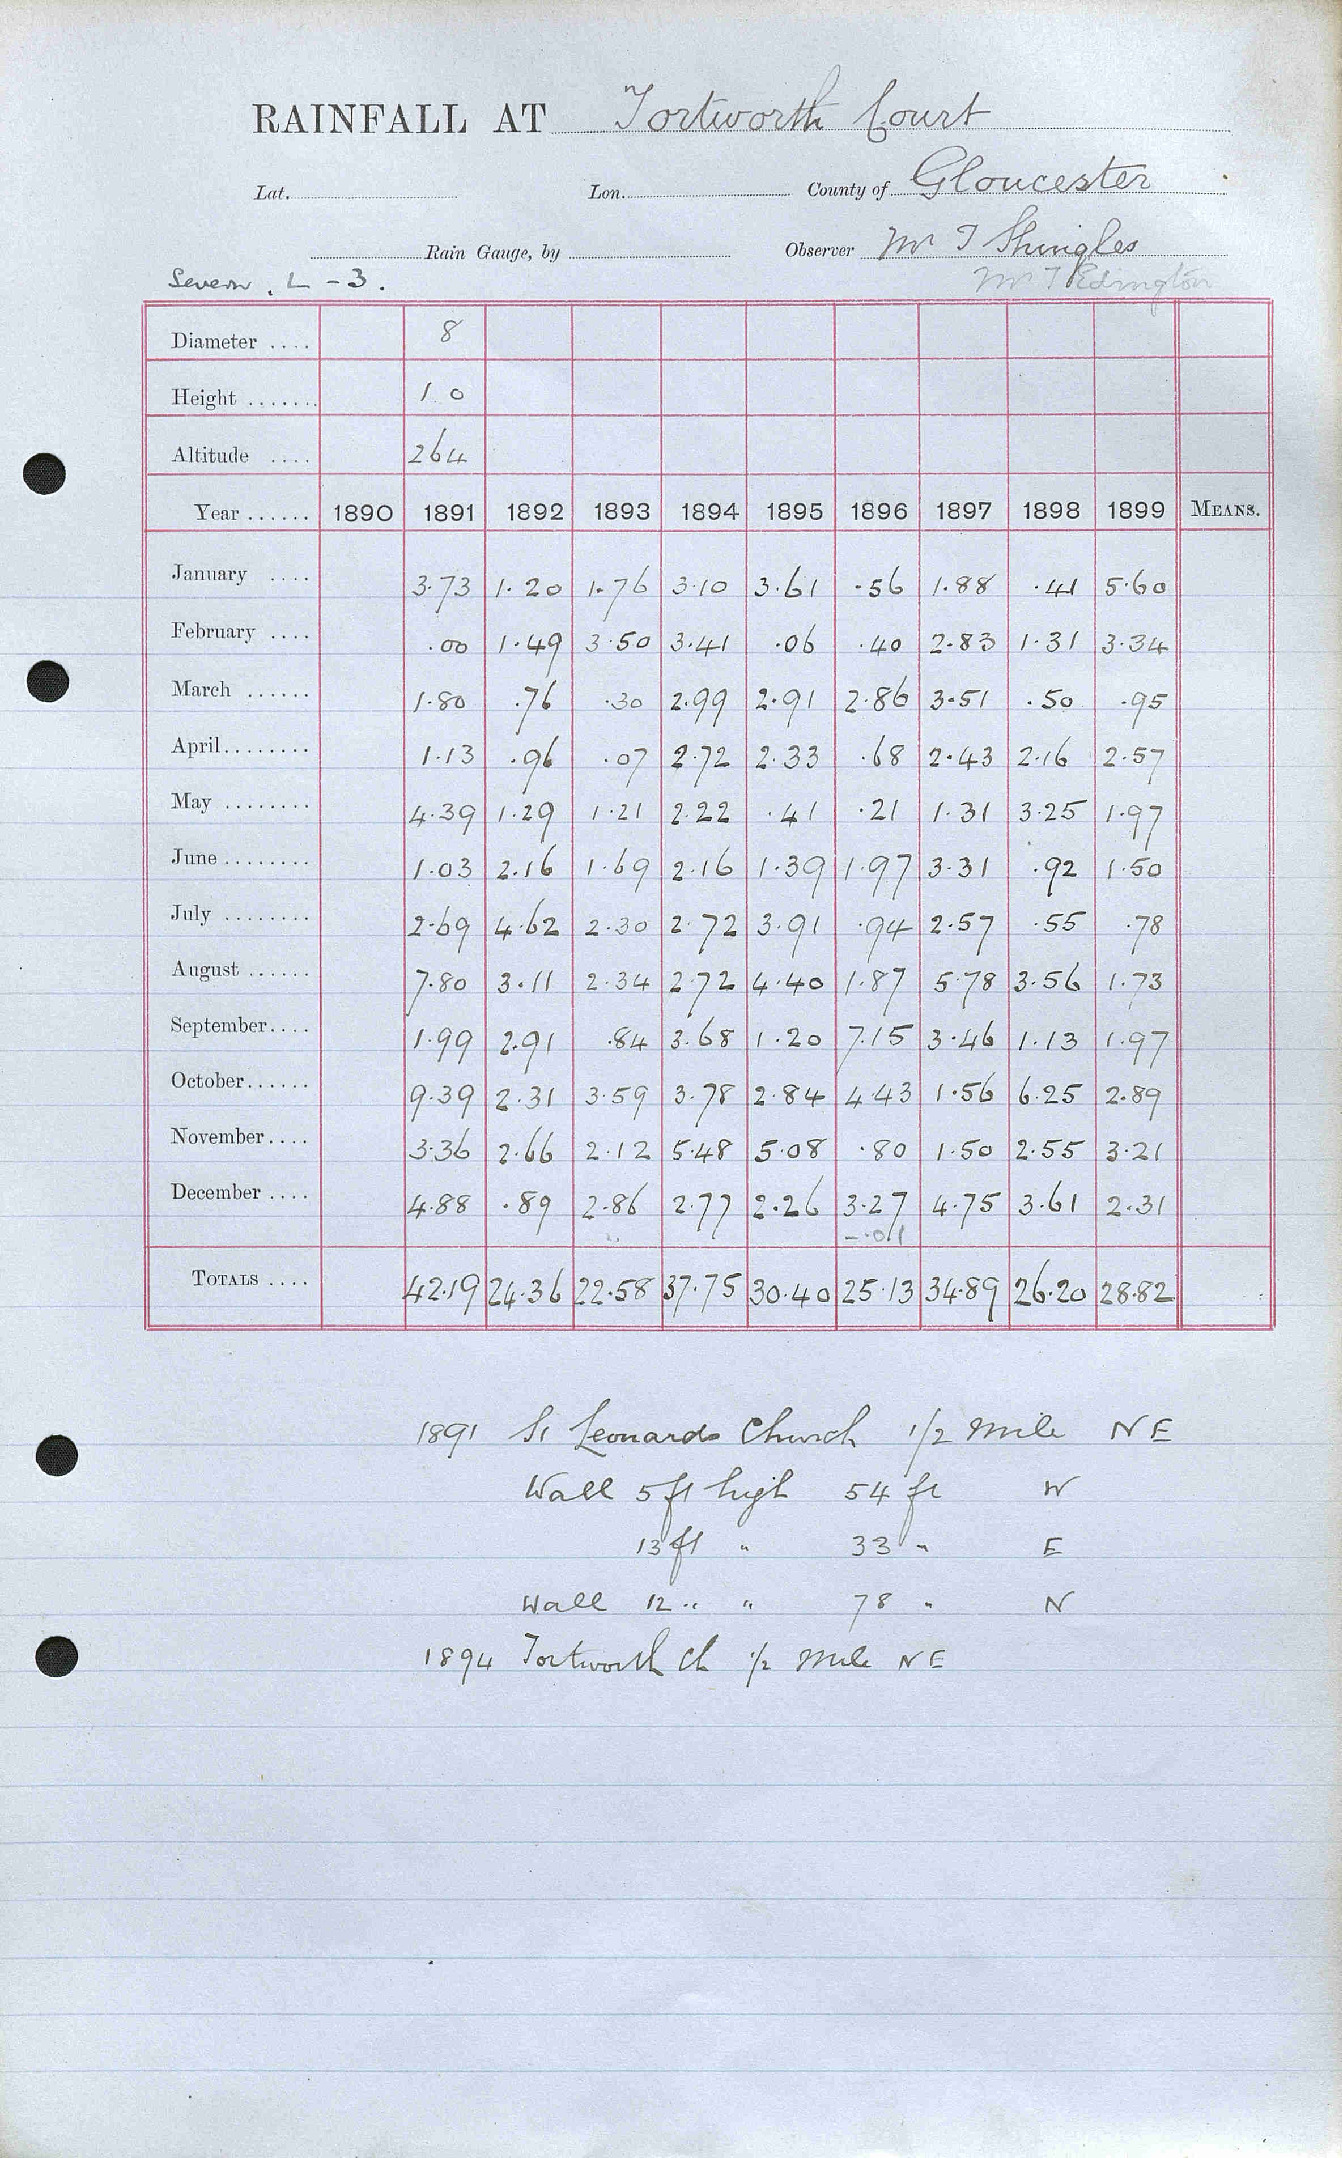 RAINFALL AT Tortworth Court
Lat. Lon. County of Gloucester
Rain Gauge, by Observer Mr T Shingles
Severn. L - 3. Mr T Edrington
Diameter .... 8
Height ....... 1 0
Altitude .... 264
Year ...... 1890 1891 1892 1893 1894 1895 1896 1897 1898 1899 MEANS.
January .... 3.73 1.20 1.76 3.10 3.61 .56 1.88 .41 5.60
February .... .00 1.49 3.50 3.41 .06 .40 2.83 1.31 3.34
March ...... 1.80 .76 .30 2.99 2.91 2.86 3.51 .50 .95
April........ 1.13 .96 .07 2.72 2.33 .68 2.43 2.16 2.57
May ........ 4.39 1.29 1.21 2.22 .41 .21 1.31 3.25 1.97
June ........ 1.03 2.16 1.69 2.16 1.39 1.97 3.31 .92 1.50
July ........ 2.69 4.62 2.30 2.72 3.91 .94 2.57 .55 .78
August ...... 7.80 3.11 2.34 2.72 4.40 1.87 5.78 3.56 1.73
September.... 1.99 2.91 .84 3.68 1.20 7.15 3.46 1.13 1.97
October...... 9.39 2.31 3.59 3.78 2.84 4.43 1.56 6.25 2.89
November.... 3.36 2.66 2.12 5.48 5.08 .80 1.50 2.55 3.21
December .... 4.88 .89 2.86 2.77 2.26 3.27 4.75 3.61 2.31
-.01
TOTALS .... 42.19 24.36 22.58 37.75 30.40 25.13 34.89 26.20 28.82
1891 St Leonards Church 1/2 mile NE
Wall 5 ft high 54 ft W
13 ft " 33 " E
Wall 12 " " 78 " N
1894 Tortworth Ch 1/2 mile NE